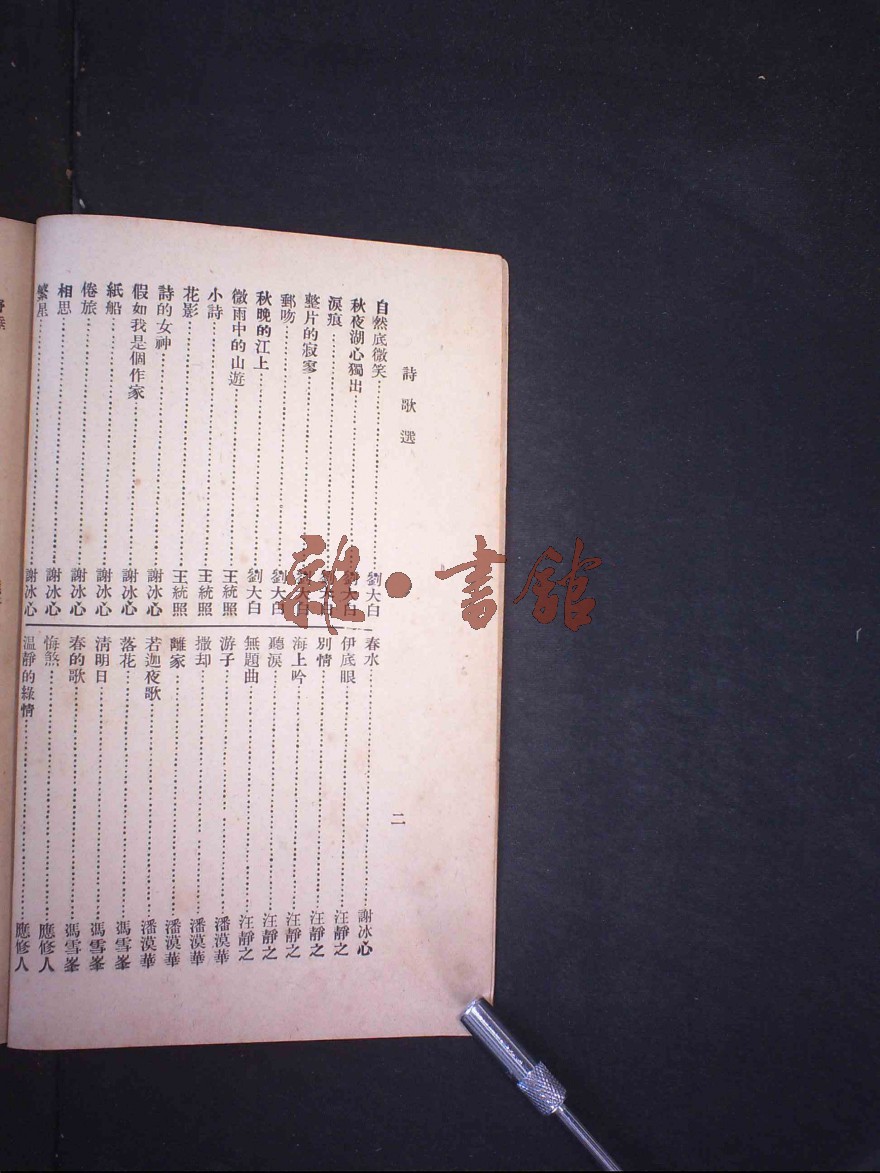 詩歌選
自然底微笑⋯⋯劉大白
秋夜湖心獨出⋯⋯劉大白
淚痕⋯⋯劉大白
整片的寂寥⋯⋯劉大白
郵吻⋯⋯劉大白
秋晚的江上⋯⋯劉大白
微雨中的山遊⋯⋯王統照
小詩⋯⋯王統照
花影⋯⋯王統照
詩的女神⋯⋯謝冰心
假如我是個作家⋯⋯謝冰心
紙船⋯⋯謝冰心
倦旅⋯⋯謝冰心
相思⋯⋯謝冰心
繁星⋯⋯謝冰心
春水⋯⋯謝冰心
伊底眼⋯⋯汪靜之
別情⋯⋯汪靜之
海上吟⋯⋯汪靜之
聽淚⋯⋯汪靜之
無題曲⋯⋯汪靜之
游子⋯⋯潘漠華
撒却⋯⋯潘漠華
離家⋯⋯潘漠華
若迦夜歌⋯⋯潘漠華
落花⋯⋯馮雪峯
清明日⋯⋯馮雪峯
春的歌⋯⋯馮雪峯
悔煞⋯⋯應修人
溫靜的綠情⋯⋯應修人
二
雜·書館